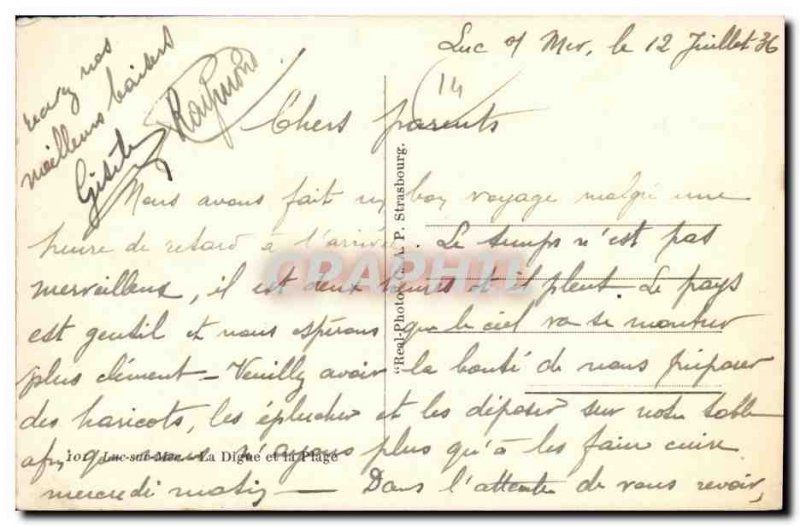 Luc s/ Mer, le 12 Juillet 36
14
Chers parents
Nous avons fait un bon voyage malgré une
heure de retard à l'arrivée. Le temps n'est pas
merveilleux, il est deux heures et il pleut. Le pays
est gentil et nous espérons que le ciel va se montrer
plus clément - Veuillez avoir la bonté de nous préparer
des haricots, les éplucher et les déposer sur notre table
afin que nous n'ayons plus qu'à les faire cuire
mercredi matin - Dans l'attente de vous revoir,
recevez nos
meilleurs baisers
Gisèle Raymond
"Real-Photo" C. A. P. Strasbourg.
101 Luc-sur-Mer. - La Digue et la Plage
CRAPHIL